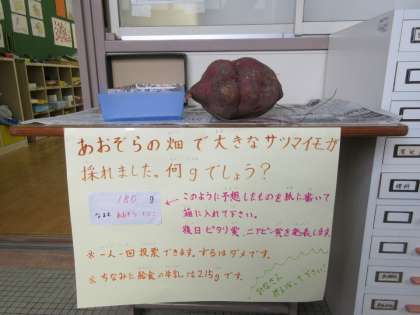 あおぞらの畑で大きなサツマイモが
採れました。何gでしょう?
180 g
なまえ あおぞら
このように予想したものを紙に書いて
箱に入れて下さい。
後日ピタリ賞、ニアピン賞を発表します。
※一人一回投票できます。ずるはダメです。
※ちなみに給食の牛乳は215gです。
みなさん
がんばって下さい!